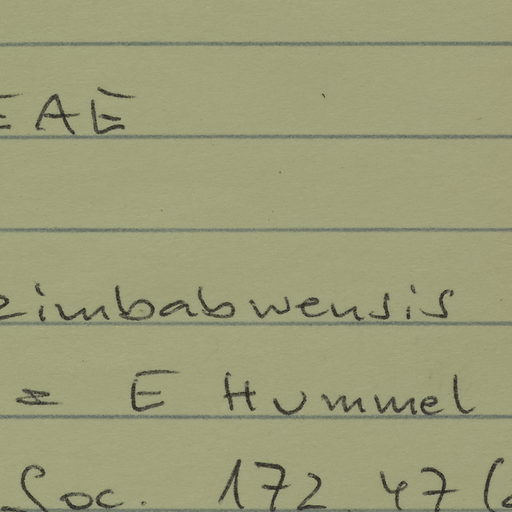 EAE
zimbabwensis
= E Hummel
Soc. 172 47 (